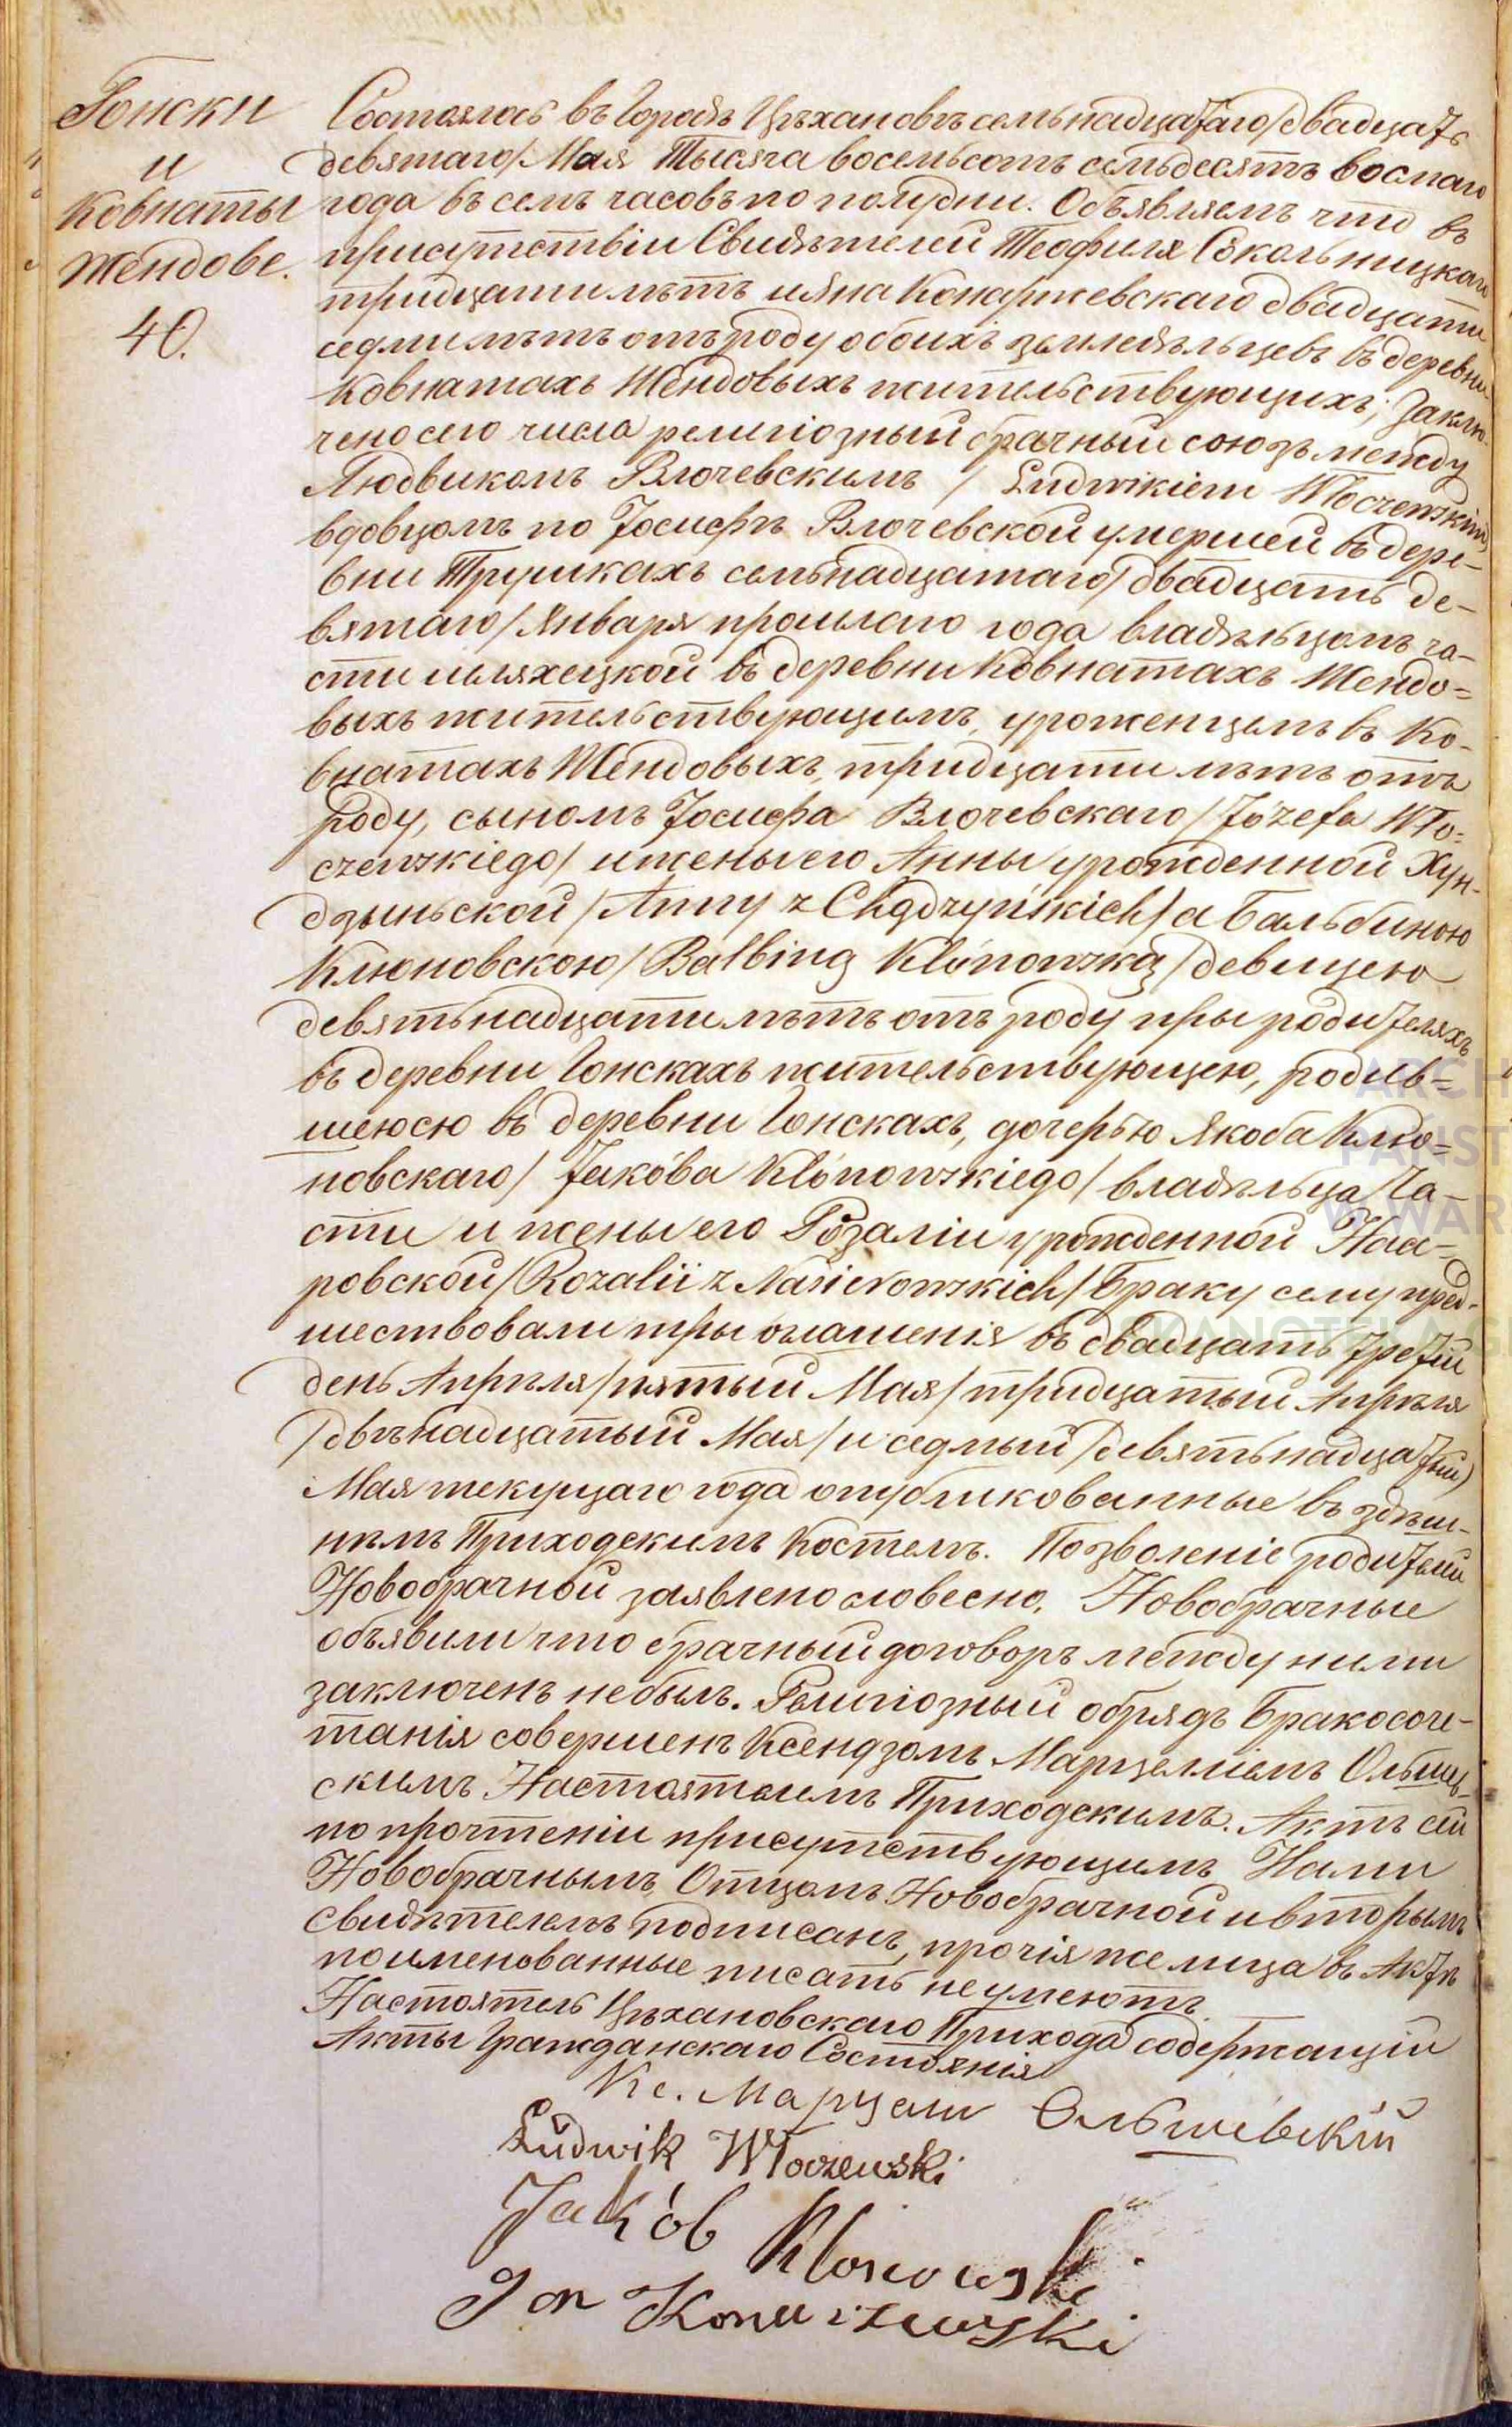 Гонски
и
Ковнаты
Жендове.
40.
Состоялось въ Городѣ Цѣхановѣ семьнадцатаго/двадцать
девятаго/Мая Тысяча восемьсотъ семьдесятъ восмаго
года въ семь часовъ по полудни. Объявляемъ что въ
присутствіи Свидѣтелей Теофиля Сокольницкаго
тридцати лѣтъ и Яна Конаржевскаго двадцати
седми лѣтъ отъ роду обоихъ земледѣльцевъ въ деревни
Ковнатахъ Жендовыхъ жительствующихъ; Заклю-
чено сего числа религіозный брачный союзъ между
Людвикомъ Влочевскимъ / Ludwikiem Włoczewskim/
вдовцомъ по Іосифѣ Влочевской умершей въ дере-
вни Трушкахъ семьнадцатаго/двадцать де-
вятаго/Января прошлаго года владѣльцомъ ча-
сти шляхецкой въ деревни Ковнатахъ Жендо=
выхъ жительствующимъ, уроженцемъ въ Ко-
внатахъ Жендовыхъ, тридцати лѣтъ отъ
роду, сыномъ Іосифа Влочевскаго/Józefa Wło=
czewskiego/ и жены его Анны урожденной Хун-
дзыньской/Anny z Chądzyńskich/а Бальбиною
Клюновскою/Balbiną Klónowską/девицею
девятьнадцати лѣтъ отъ роду пры родителяхъ
въ деревни Гонскахъ жительствующею, родив=
шеюсю въ деревни Гонскахъ, дочерью Якоба Клю=
новскаго/ Jakóba Klónowskiego/владѣльца Ча-
сти и жены его Розаліи урожденной Нася=
ровской/Rozalii z Nasierowskich/Браку сему пред-
шествовали тры оглашенія въ двадцать третій
день Апрѣля/пятый Мая/тридцатый Апрѣля
/двѣнадцатый Мая/и седмый/девятьнадцатый)
Мая текущаго года опубликованные въ здѣш-
нѣмъ Приходскимъ Костелѣ. Позволеніе родителей
Новобрачной заявлено словесно. Новобрачные
объявили что брачный договоръ между ними
заключенъ небылъ. Религіозный обрядъ Бракосоче-
танія совершенъ Ксендзомъ Марцелліемъ Ольшев-
скимъ Настоятелемъ Приходскимъ. Актъ сей
по прочтеніи присутствующимъ Нами
Новобрачнымъ, Отцомъ Новобрачной и вторымъ
свидѣтелемъ подписанъ, прочія же лица въ Актѣ
поименованные писать не умеютъ.
Настоятель Цѣхановскаго Прихода содержащій
Акты Гражданскаго Состоянія
Кс. Марцели Ольшевскій
Ludwik Włoczewski
Jakób Klonowski
Jan Konarzewski
ARCH
PAŃST
W WAR
SKANOTEKA.G